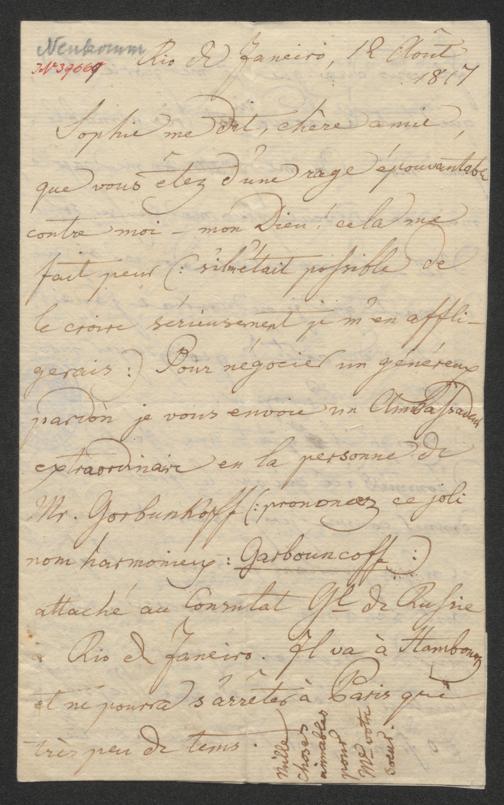 Neukomm
No 37669
Rio de Janeiro, 12 Août
1817
Sophie me dit, chère amie,
que vous étez d'une rage épouvantable
contre moi – mon Dieu! cela me
fait peur (: s'il m'était possible de
le croire sérieusement je m'en affli-
gerais :) Pour négocier un généreux
pardon je vous envoie un Ambassadeur
extraordinaire en la personne de
Mr. Gorbunkoff (: prononcez ce joli
nom harmonieux : Garbouncoff :)
attaché au Consulat Gl. de Russie
Rio de Janeiro. Il va à Hambourg
et ne pourra s'arrêter à Paris que
très peu de tems.
Mille
choses
aimables
pour
Me votre
soeur.